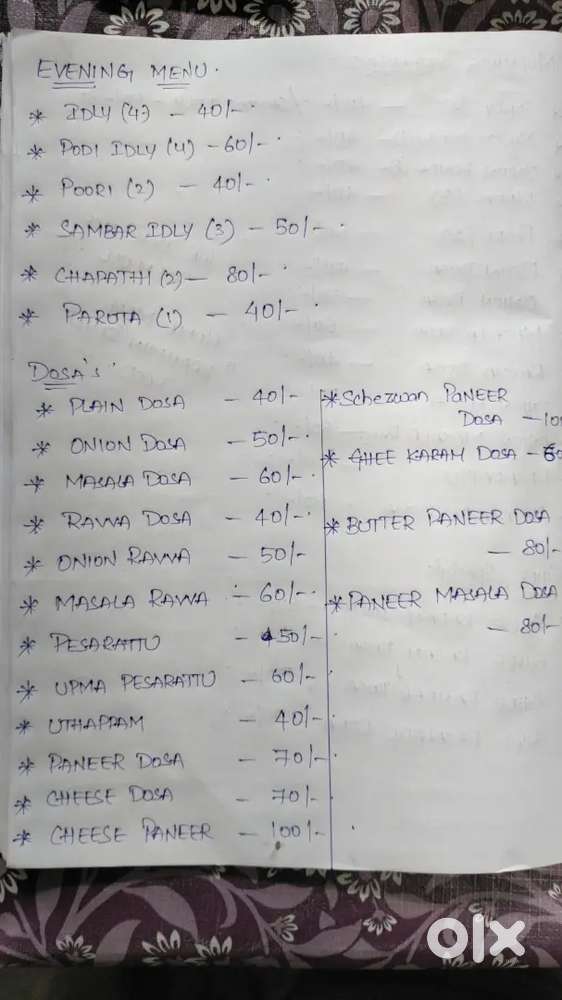 EVENING MENU.
* IDLY (4) - 40/-
* PODI IDLY (4) - 60/-
* POORI (2) - 40/-
* SAMBAR IDLY (3) - 50/-
* CHAPATHI (2) - 80/-
* PAROTA (1) - 40/-
DOSA'S
* PLAIN DOSA - 40/-
* ONION DOSA - 50/-
* MASALA DOSA - 60/-
* RAVVA DOSA - 40/-
* ONION RAVVA - 50/-
* MASALA RAVVA - 60/-
* PESARATTU - 50/-
* UPMA PESARATTU - 60/-
* UTHAPPAM - 40/-
* PANEER DOSA - 70/-
* CHEESE DOSA - 70/-
* CHEESE PANEER - 100/-
* Schezwan PANEER
DOSA - 10
* GHEE KARAM DOSA -
* BUTTER PANEER DOSA
- 80/-
* PANEER MASALA DOSA
- 80/-
olx